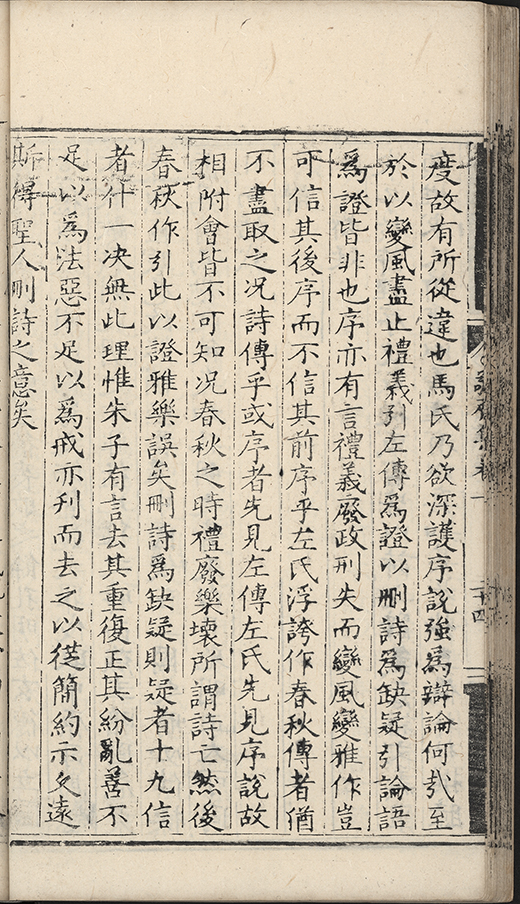 度故有所從違也馬氏乃欲深護序說強爲辯論何哉至
於以變風盡止禮義引左傳爲證以刪詩爲缺疑引論語
爲證皆非也序亦有言禮義廢政刑失而變風變雅作豈
可信其後序而不信其前序乎左氏浮誇作春秋傳者猶
不盡取之况詩傳乎或序者先見左傳左氏先見序說故
相附會皆不可知况春秋之時禮廢樂壞所謂詩亡然後
春秋作引此以證雅樂誤矣刪詩爲缺疑則疑者十九信
者什一决無此理惟朱子有言去其重復正其紛亂善不
足以爲法惡不足以爲戒亦刋而去之以從簡約示久遠
斯得聖人刪詩之意矣